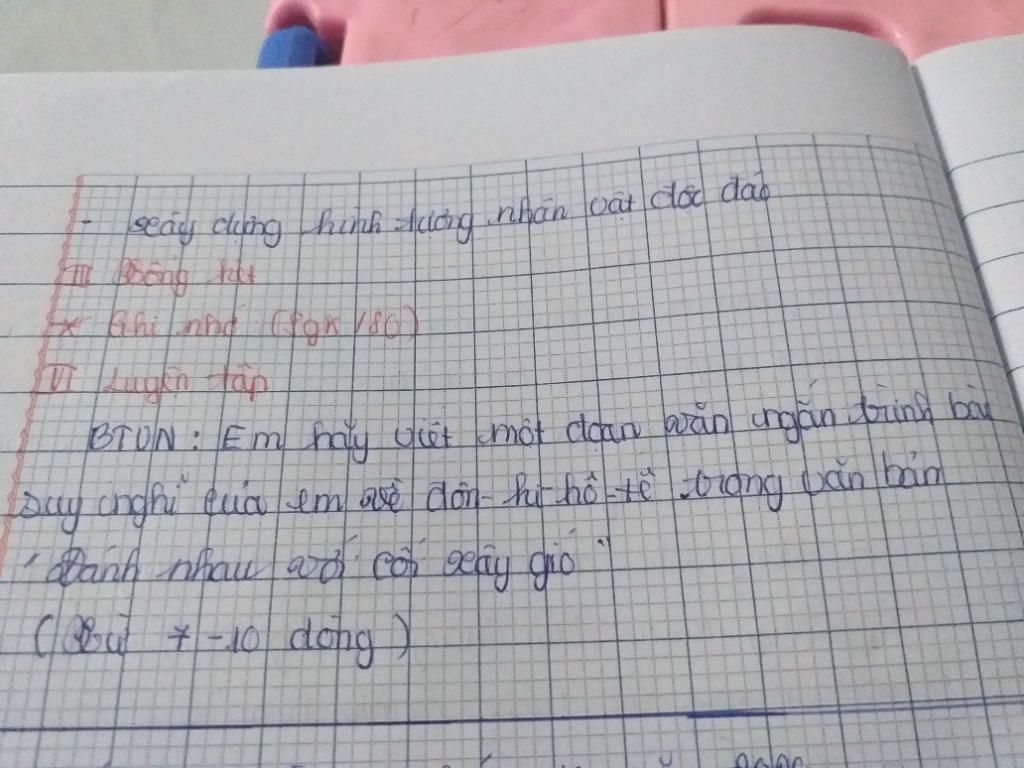 - xây dựng hình tượng nhân vật độc đáo
III Tổng kết
* Ghi nhớ (sgk/80)
VI Luyện tập
BTVN: Em hãy viết một đoạn văn ngắn trình bày
suy nghĩ của em về đôn-ki-hô-tê trong văn bản
"Đánh nhau với cối xây gió"
(Từ 7-10 dòng)